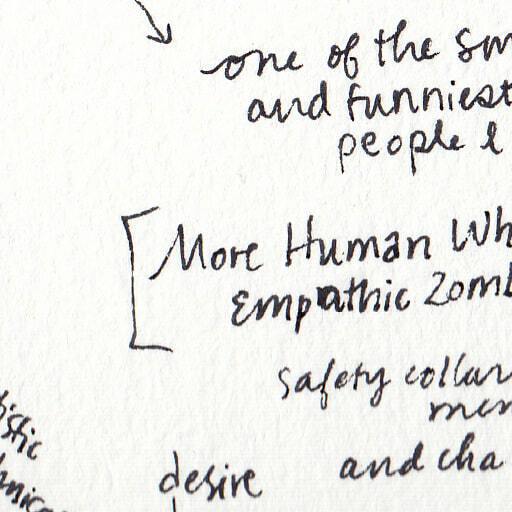 one of the sm
and funniest
people I
More Human Wh
Empathic Zomb
safety collar
mem
istic
desire
and cha